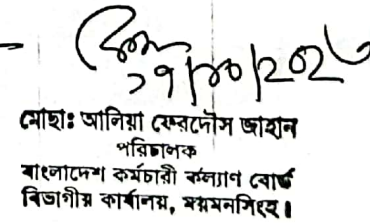 মোছাঃ আনিয়া ফেরদৌস জাহান
পরিচালক
বাংলাদেশ কর্মচারী কল্যাণ বোর্ড
বিভাগীয় কার্যালয়, ময়মনসিংহ।